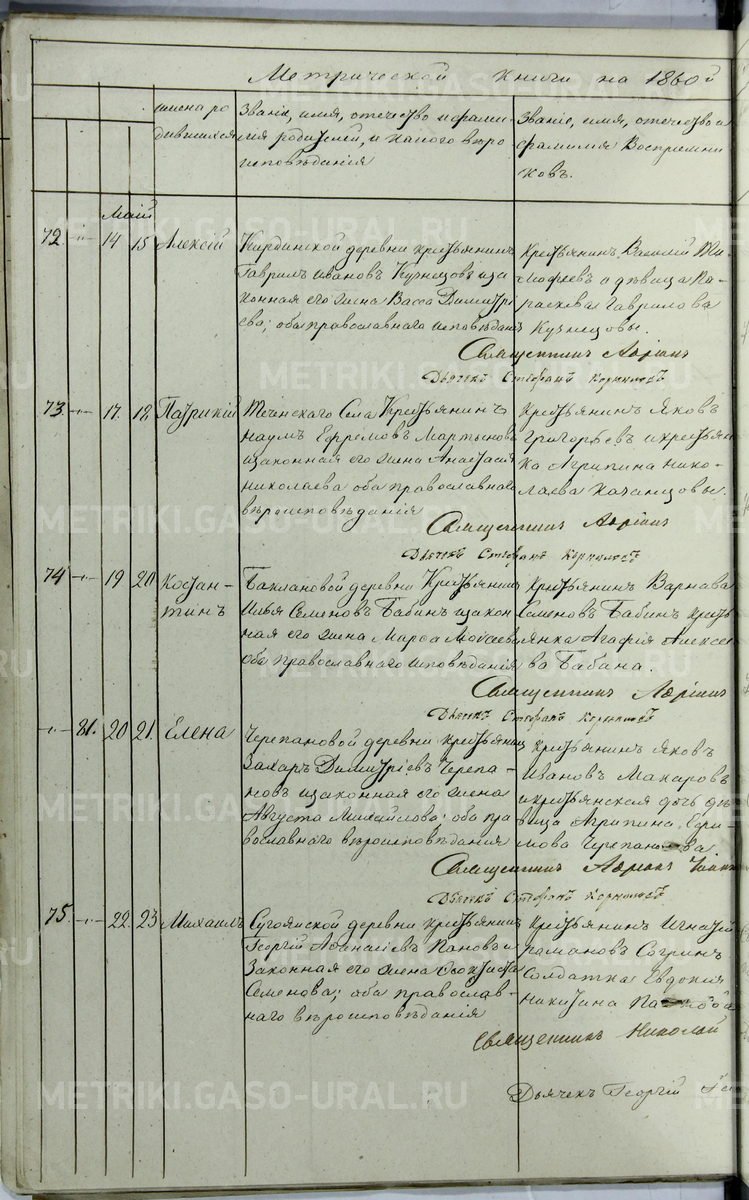 Метрической Книги на 1860й
имена ро
дившихся
Званіе, имя, отчество и фами
лія родителей, и какого вѣро
исповѣданія
Званіе, имя, отчество и
фамилія Воспреемни
ковъ.
Маій
72. 14 15 Алексій
Гаврилъ Ивановъ Кузнецовъ и за
конная его жена Васса Димитрі
ева; оба православнаго исповѣдан.
Крестьянинъ Василій Ти-
мофеевъ и дѣвица Па-
раскева Гаврилова
Кузнецовы.
Священникъ
Дьячекъ Стефанъ
73. 17. 18. Патрикій
Теченскаго Села Крестьянинъ
Наумъ Ефремовъ Мартыновъ
и законная его жена Анастасія
Николаева оба православнаго
вѣроисповѣданія
Крестьянинъ Яковъ
Григорьевъ и крестьян
ка Агрипина Нико-
лаева
Священникъ
Дьячекъ Стефанъ
74 19 20. Костан-
тинъ
Баклановой деревни Крестьянинъ
Илья Семеновъ Бабинъ и закон
ная его жена Марѳа
оба православнаго исповѣданія
Крестьянинъ Варнава
Семеновъ Бабинъ кресть
янка Агафія Алексее
ва Бабина.
Священникъ
Дьячекъ Стефанъ
81. 20 21. Елена
Черепановой деревни крестьянинъ
Захаръ Димитріевъ Черепа-
новъ и законная его жена
Августа Михайлова; оба пра
вославнаго вѣроисповѣданія
Крестьянинъ Яковъ
Ивановъ Макаровъ
и крестьянская дочь дѣ
вица Агрипина Ефи
мова Черепанова.
Священникъ
Дьячекъ Стефанъ
75. 22. 23 Михаилъ
Сугоякской деревни крестьянинъ
Георгій Аѳанасіевъ Пановъ и
Законная его жена
Семенова; оба православ-
наго вѣроисповѣданія
Крестьянинъ Игнатій
Рамановъ Согринъ
Солдатка Евдокія
Никитина
Священникъ Николай
Дьячекъ Георгій
METRIKI.GASO-URAL.RU